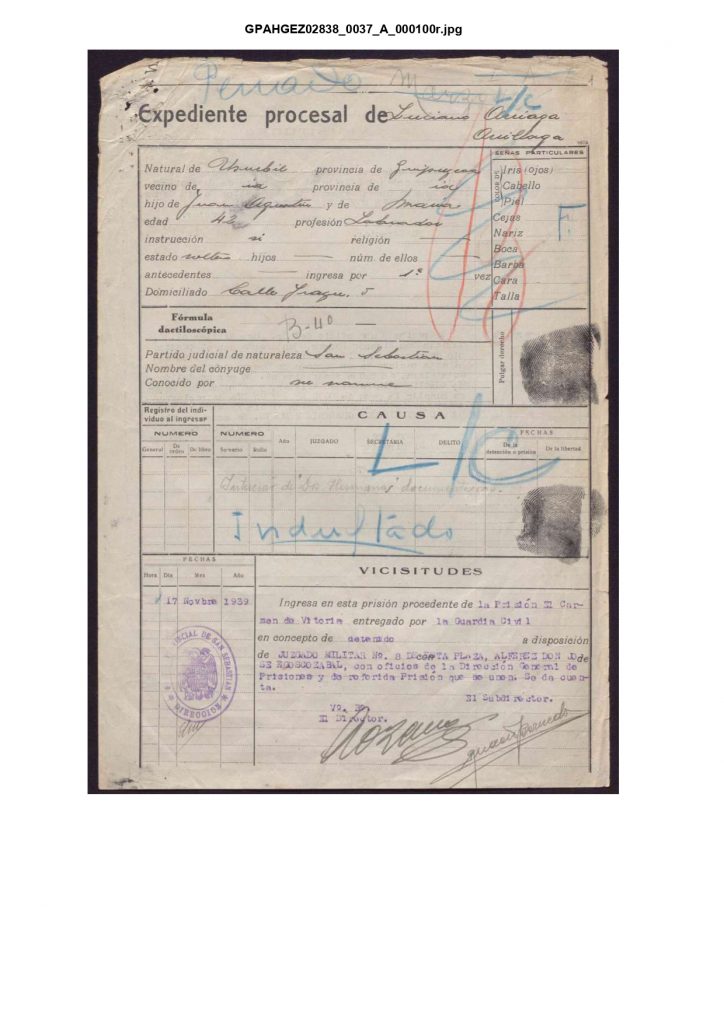 GPAHGEZ02838_0037_A_000100r.jpg
Penado
L/C
Expediente procesal de Luciano Arriaga
SEÑAS PARTICULARES
Natural de Usurbil provincia de Guipuzcoa
vecino de id provincia de id
hijo de Juan Agustin y de Maria
edad 42 profesión Labrador
instrucción si religión —
estado soltero hijos — núm. de ellos —
antecedentes — ingresa por 1ª vez
Domiciliado Calle 5
COLOR DE
Iris (ojos)
Cabello
Piel
Cejas
Nariz
Boca
Barba
Cara
Talla
F.
Fórmula
dactiloscópica
Partido judicial de naturaleza San Sebastian
Nombre del cónyuge
Conocido por su nombre
Pulgar derecho
Registro del indi-
viduo al ingresar
CAUSA
NUMERO NUMERO Año JUZGADO SECRETARIA DELITO FECHAS
General De orden De libro Sumario Rollo De la detención o prisión De la libertad
L/C
Indultado
FECHAS
Hora Dia Mes Año
VICISITUDES
17 Novbre 1939
Ingresa en esta prisión procedente de la Prisión El Car-
men de Vitoria entregado por la Guardia Civil
en concepto de detenido a disposición
de JUZGADO MILITAR No. 8 DE ESTA PLAZA, ALFEREZ DON JO-
SE EGOSCOZABAL, con oficios de la Dirección General de
Prisiones y de referida Prisión que se unen. Se da cuen-
ta.
El Subdirector.
Vº. Bº.
El Director.
DE SAN SEBASTIAN
DIRECCION